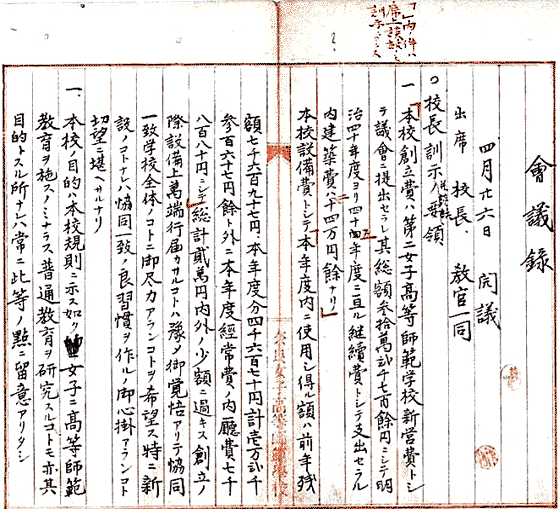 「」内ノ件ハ
會議録
四月廿六日 開議
出席 校長、教官一同
○校長訓示ノ要領
一、本校創立費ハ第二女子高等師範学校新営費トシ
テ議會ニ提出セラレ其総額参拾萬弐千七百餘円ニシテ明
治四十年度ヨリ四十四年度ニ亘ル継續費トシテ支出セラル
内建築費ハ二十四万円餘ナリ」
本校設備費トシテ本年度内ニ使用シ得ル額ハ前年残
額七千六百九十七円、本年度分四千六百七十円計壱万弐千
参百六十七円餘ト外ニ本年度経常費ノ内廳費七千
八百八十円ニシテ総計貳萬円内外ノ少額ニ過キス創立ノ
際設備上萬端行届カサルコトハ豫メ御覚悟アリテ協同
一致学校全体ノコトニ御尽力アランコトヲ希望ス特ニ新
設ノコトナレハ協同一致ノ良習慣ヲ作ルノ御心掛アランコト
切望ニ堪ヘサルナリ
一、本校ノ目的ハ本校規則ニ示ス如ク女子ニ高等師範
教育ヲ施スノミナラス普通教育ヲ研究スルコトモ亦其
目的トスル所ナレハ常ニ此等ノ點ニ留意アリタシ
奈良女子高等師範學校